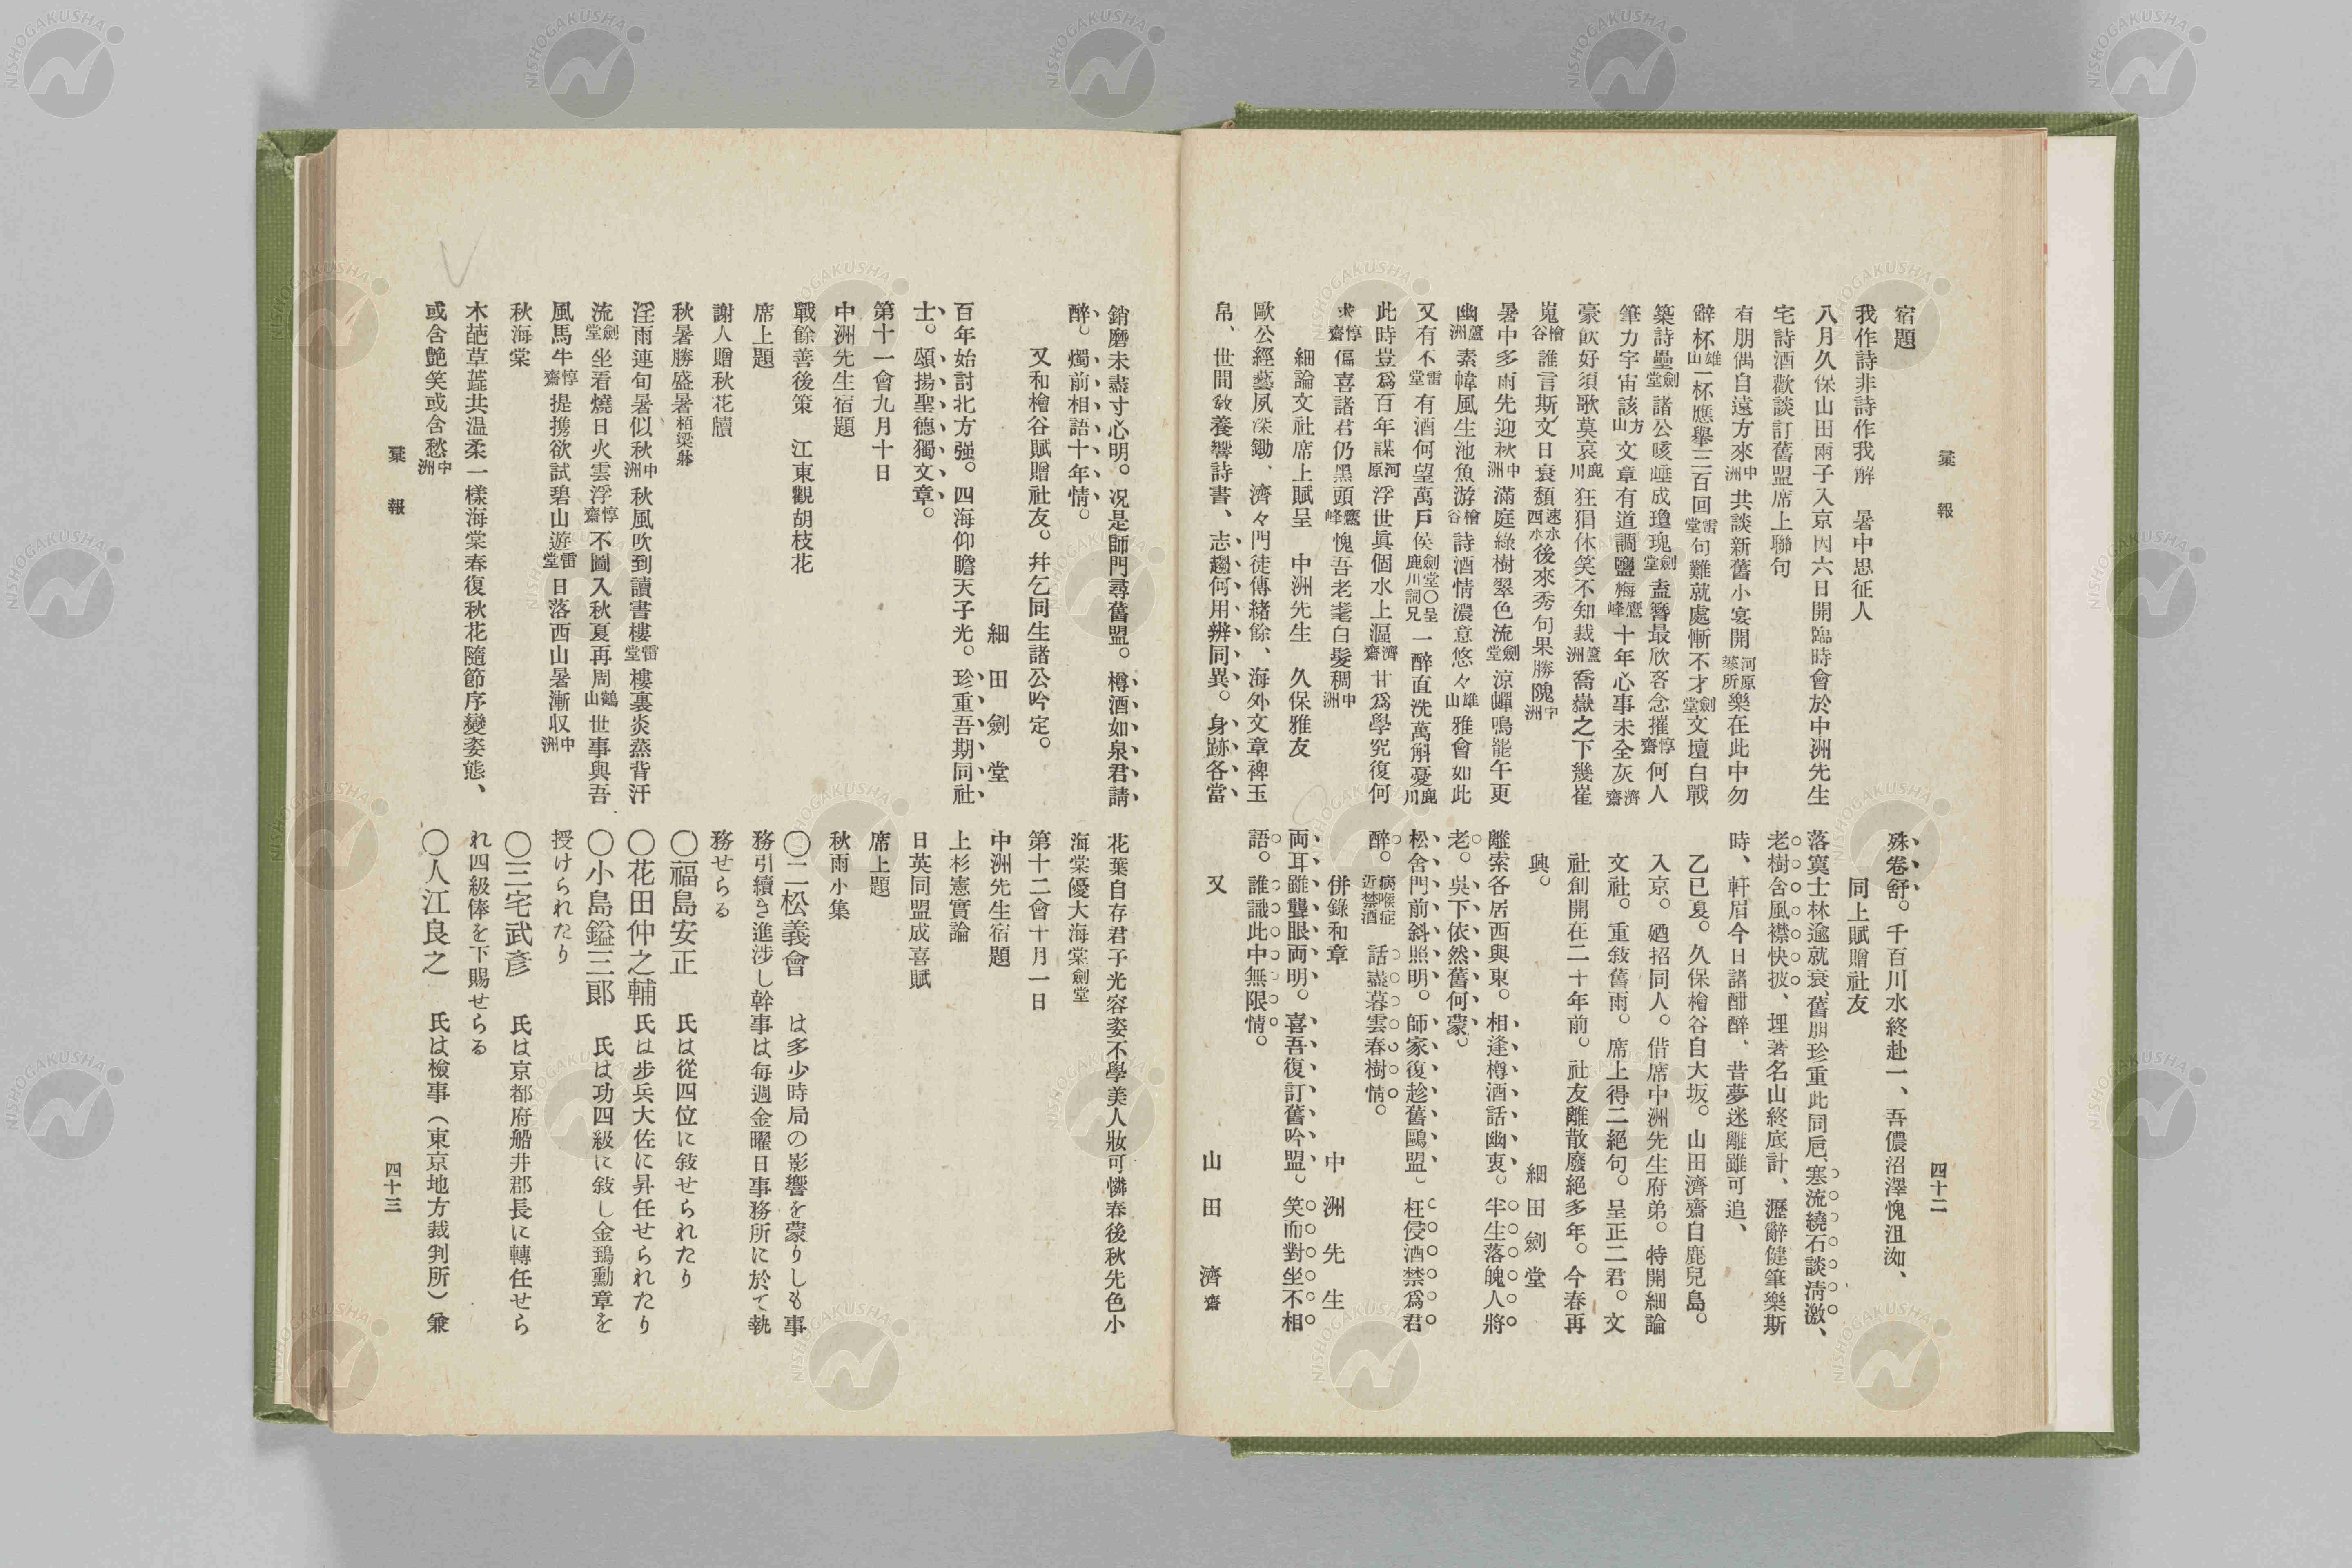 彙報
四十二
宿題
我作詩非詩作我解　暑中思征人
八月久保山田兩子入京因六日開臨時會於中洲先生
宅詩酒歡談訂舊盟席上聯句
有朋偶自遠方來中洲共談新舊小宴開樂在此中勿
辭杯雄山一杯應擧三百回雷堂句難就處慚不才劍堂文壇白戰
築詩壘劍堂諸公咳唾成瓊瑰劍堂盍簪最欣客念摧惇齋何人
筆力宇宙該方山文章有道調鹽梅鷹峰十年心事未全灰濟齋
豪飮好須歌莫哀鹿川狂狷休笑不知裁蘆洲喬嶽之下幾崔
嵬檜谷誰言斯文日衰頽後來秀句果勝隗中洲
暑中多雨先迎秋中洲滿庭綠樹翠色流劍堂涼蟬鳴罷午更
幽蘆洲素幃風生池魚游檜谷詩酒情濃意悠々雄山雅會如此
又有不雷堂有酒何望萬戶侯劍堂○呈鹿川詞兄一醉直洗萬斛憂鹿川
此時豈爲百年謀河原浮世眞個水上漚濟齋甘爲學究復何
求惇齋偏喜諸君仍黑頭鷹峰愧吾老耄白髮稠中洲
細論文社席上賦呈　中洲先生　久保雅友
歐公經藝夙深鋤、濟々門徒傳緖餘、海外文章裨玉
帛、世間敎養響詩書、志趨何用辨同異。身跡各當
殊卷舒。千百川水終赴一、吾儂沼澤愧沮洳、
同上賦贈社友
落寞士林逾就衰、舊朋珍重此同巵、寒流繞石談淸激、
老樹含風襟快披、埋著名山終底計、瀝辭健筆樂斯
時、軒眉今日諸酣醉、昔夢迷離雖可追、
乙巳夏。久保檜谷自大坂。山田濟齋自鹿兒島。
入京。廼招同人。借席中洲先生府弟。特開細論
文社。重敍舊雨。席上得二絕句。呈正二君。文
社創開在二十年前。社友離散廢絕多年。今春再
興。
細田劍堂
離索各居西與東。相逢樽酒話幽衷。半生落魄人將
老。吳下依然舊何蒙。
松舍門前斜照明。師家復趁舊鷗盟。枉侵酒禁爲君
醉。病喉症近禁酒　話盡暮雲春樹情。
倂錄和章　中洲先生
両耳雖聾眼両明。喜吾復訂舊吟盟。笑而對坐不相
語。誰識此中無限情。
又　山田濟齋
銷磨未盡寸心明。况是師門尋舊盟。樽酒如泉君請
醉。燭前相語十年情。
又和檜谷賦贈社友。幷乞同生諸公吟定。
細田劍堂
百年始討北方强。四海仰瞻天子光。珍重吾期同社
士。頌揚聖德獨文章。
第十一會九月十日
中洲先生宿題
戰餘善後策　江東觀胡枝花
席上題
謝人贈秋花牘
秋暑勝盛暑栢梁躰
淫雨連旬暑似秋中洲秋風吹到讀書樓雷堂樓裏炎蒸背汗
流劍堂坐看燒日火雲浮惇齋不圖入秋夏再周鶴山世事與吾
風馬牛惇齋提携欲試碧山遊雷堂日落西山暑漸収中洲
秋海棠
木葩草蘂共温柔一樣海棠春復秋花隨節序變姿態、
或含艶笑或含愁中洲
花葉自存君子光容姿不學美人妝可憐春後秋先色小
海棠優大海棠劍堂
第十二會十月一日
中洲先生宿題
上杉憲實論
日英同盟成喜賦
席上題
秋雨小集
〇二松義會　は多少時局の影響を蒙りしも事
務引續き進渉し幹事は每週金曜日事務所に於て執
務せらる
〇福島安正　氏は從四位に敍せられたり
〇花田仲之輔　氏は步兵大佐に昇任せられたり
〇小島鎰三郞　氏は功四級に敍し金鵄勳章を
授けられたり
〇三宅武彥　氏は京都府船井郡長に轉任せら
れ四級俸を下賜せらる
〇人江良之　氏は檢事（東京地方裁判所）兼
彙報
四十三